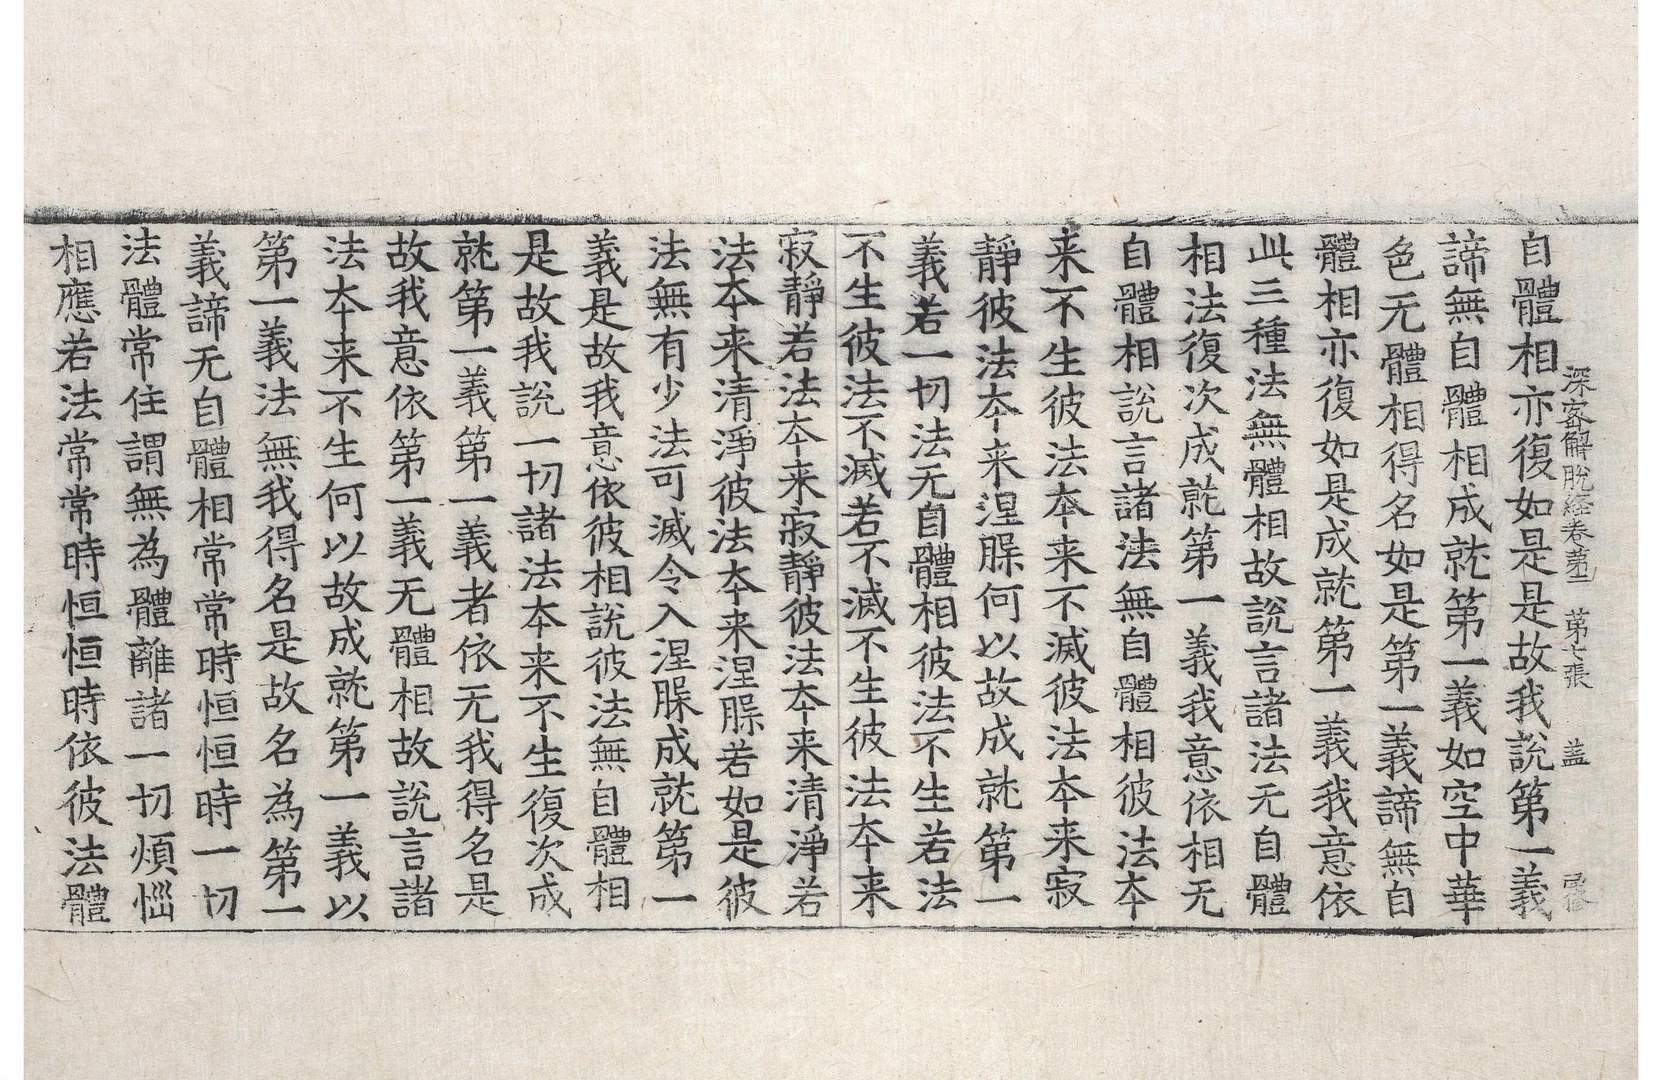 深密解脫經卷第二　第七張　盖
自體相亦復如是是故我說第一義
諦無自體相成就第一義如空中華
色无體相得名如是第一義諦無自
體相亦復如是成就第一義我意依
此三種法無體相故說言諸法无自體
相法復次成就第一義我意依相无
自體相說言諸法無自體相彼法夲
来不生彼法夲来不滅彼法夲来寂
靜彼法夲来涅腂何以故成就第一
義若一切法无自體相彼法不生若法
不生彼法不滅若不滅不生彼法夲来
寂靜若法夲来寂靜彼法夲来清淨若
法夲来清淨彼法夲来涅腂若如是彼
法無有少法可滅令入涅腂成就第一
義是故我意依彼相說彼法無自體相
是故我說一切諸法夲来不生復次成
就第一義第一義者依无我得名是
故我意依第一義无體相故說言諸
法夲来不生何以故成就第一義以
第一義法無我得名是故名為第一
義諦无自體相常常時恒恒時一切
法體常住謂無為體離諸一切煩惱
相應若法常常時恒恒時依彼法體